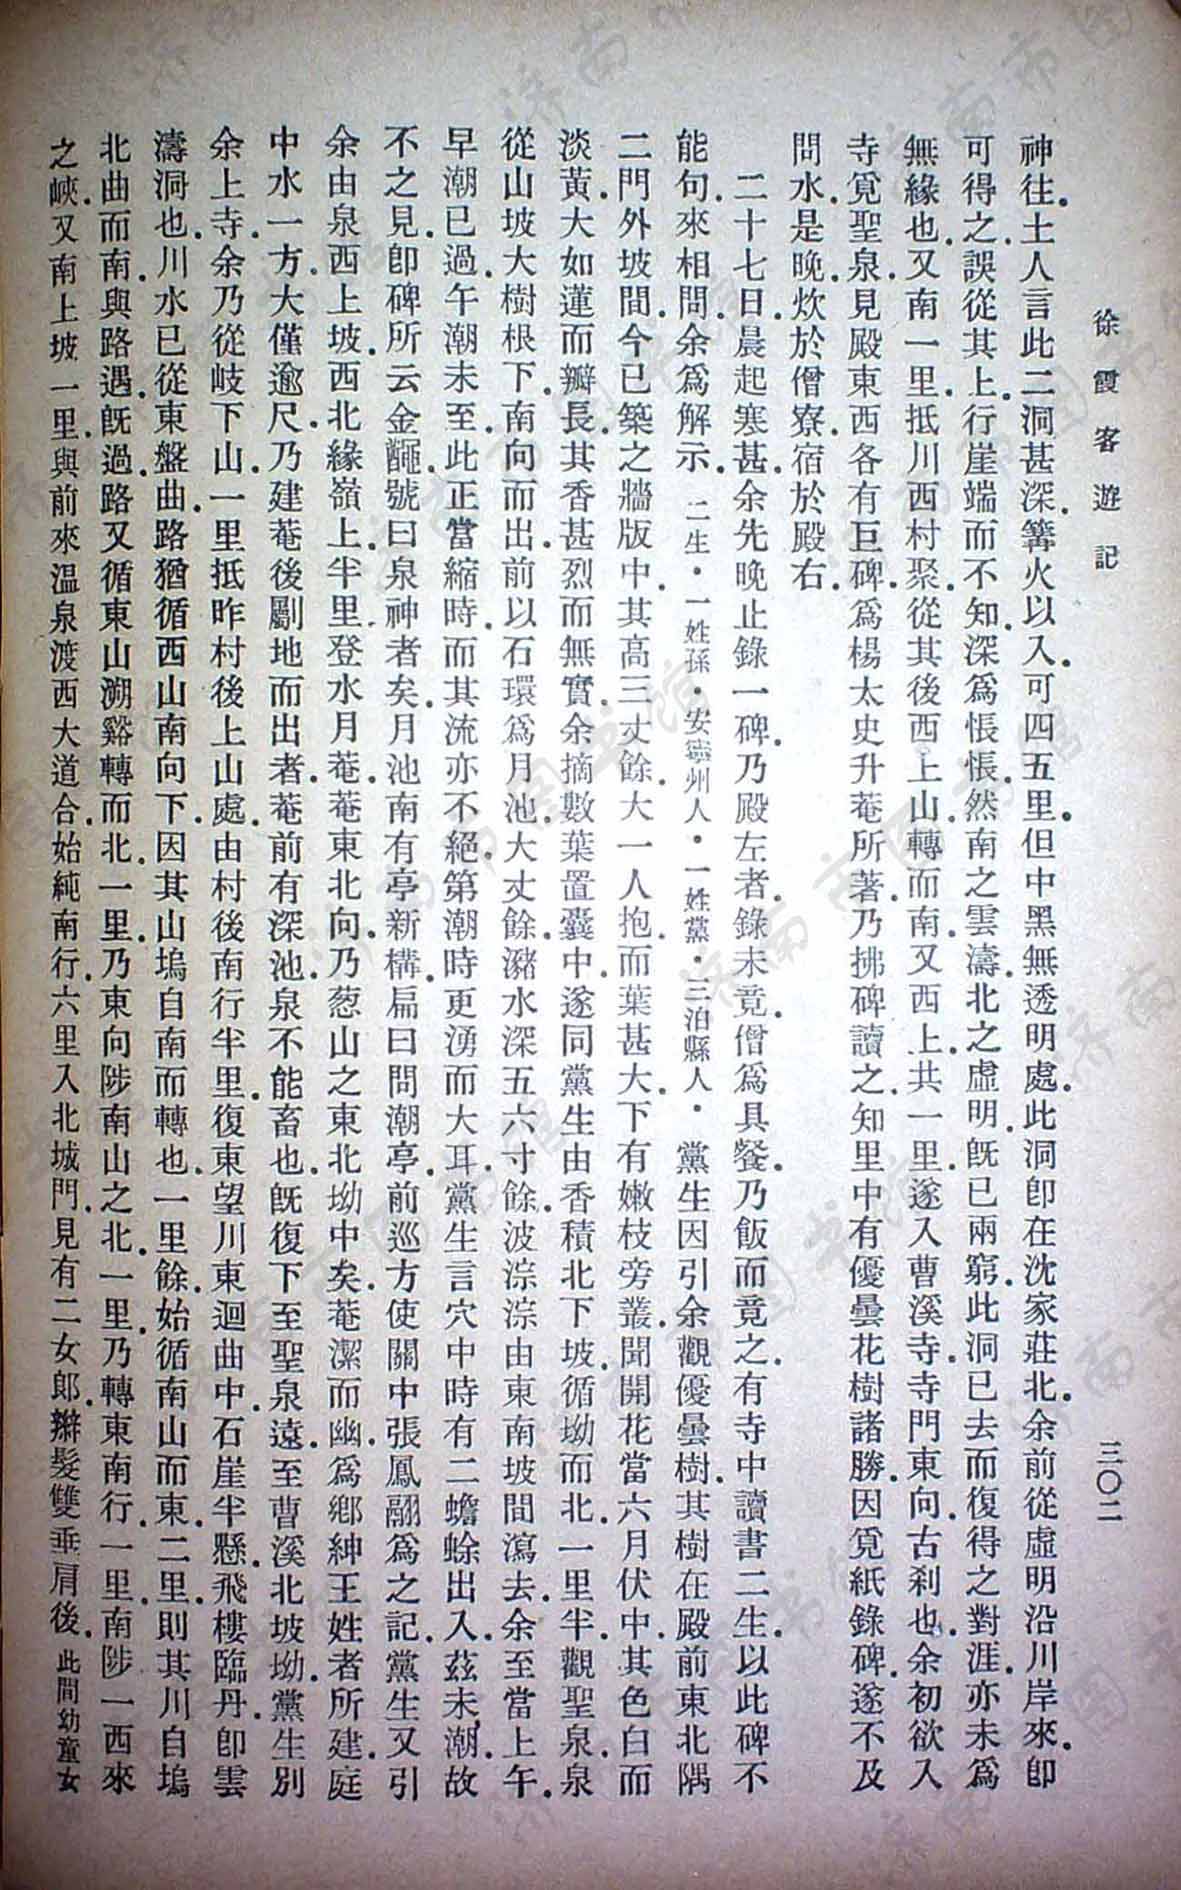 徐霞客遊記
三〇二
神往．土人言此二洞甚深．篝火以入．可四五里．但中黑無透明處．此洞卽在沈家莊北．余前從虛明沿川岸來．卽
可得之．誤從其上．行崖端而不知．深爲悵悵．然南之雲濤．北之虛明．旣已兩窮．此洞已去而復得之對涯．亦未爲
無緣也．又南一里．抵川西村聚．從其後西上山．轉而南．又西上．共一里．遂入曹溪寺．寺門東向．古刹也．余初欲入
寺覓聖泉．見殿東西各有巨碑．爲楊太史升菴所著．乃拂碑讀之．知里中有優曇花樹諸勝．因覓紙錄碑．遂不及
問水．是晚．炊於僧寮．宿於殿右．
二十七日．晨起寒甚．余先晚止錄一碑．乃殿左者．錄未竟．僧爲具餐．乃飯而竟之．有寺中讀書二生．以此碑不
能句．來相問．余爲解示．二生．一姓孫．安寧州人．一姓黨．三泊縣人．黨生因引余觀優曇樹．其樹在殿前東北隅
二門外坡間．今已築之牆版中．其高三丈餘．大一人抱．而葉甚大．下有嫩枝旁叢．聞開花當六月伏中．其色白而
淡黃．大如蓮而瓣長．其香甚烈而無實．余摘數葉置囊中．遂同黨生由香積北下坡．循坳而北．一里半．觀聖泉．泉
從山坡大樹根下．南向而出．前以石環爲月池．大丈餘．瀦水深五六寸餘．波淙淙由東南坡間瀉去．余至當上午．
早潮已過．午潮未至．此正當縮時．而其流亦不絕．第潮時更湧而大耳．黨生言穴中時有二蟾蜍出入．茲未潮．故
不之見．卽碑所云金𪓿．號曰泉神者矣．月池南有亭新構．扁曰問潮亭．前巡方使關中張鳳翮爲之記．黨生又引
余由泉西上坡．西北緣嶺上．半里．登水月菴．菴東北向．乃葱山之東北坳中矣．菴潔而幽．爲鄉紳王姓者所建．庭
中水一方．大僅逾尺．乃建菴後劚地而出者．菴前有深池．泉不能畜也．旣復下至聖泉．遠至曹溪北坡坳．黨生別
余上寺．余乃從岐下山．一里抵昨村後上山處．由村後南行半里．復東望川東迴曲中．石崖半懸．飛樓臨丹．卽雲
濤洞也．川水已從東盤曲．路猶循西山南向下．因其山塢自南而轉也．一里餘．始循南山而東．二里．則其川自塢
北曲而南．與路遇．旣過．路又循東山溯谿轉而北．一里．乃東向陟南山之北．一里．乃轉東南行．一里．南陟一西來
之峽．又南上坡一里．與前來溫泉渡西大道合．始純南行．六里入北城門．見有二女郎．辮髮雙垂肩後．此間幼童女